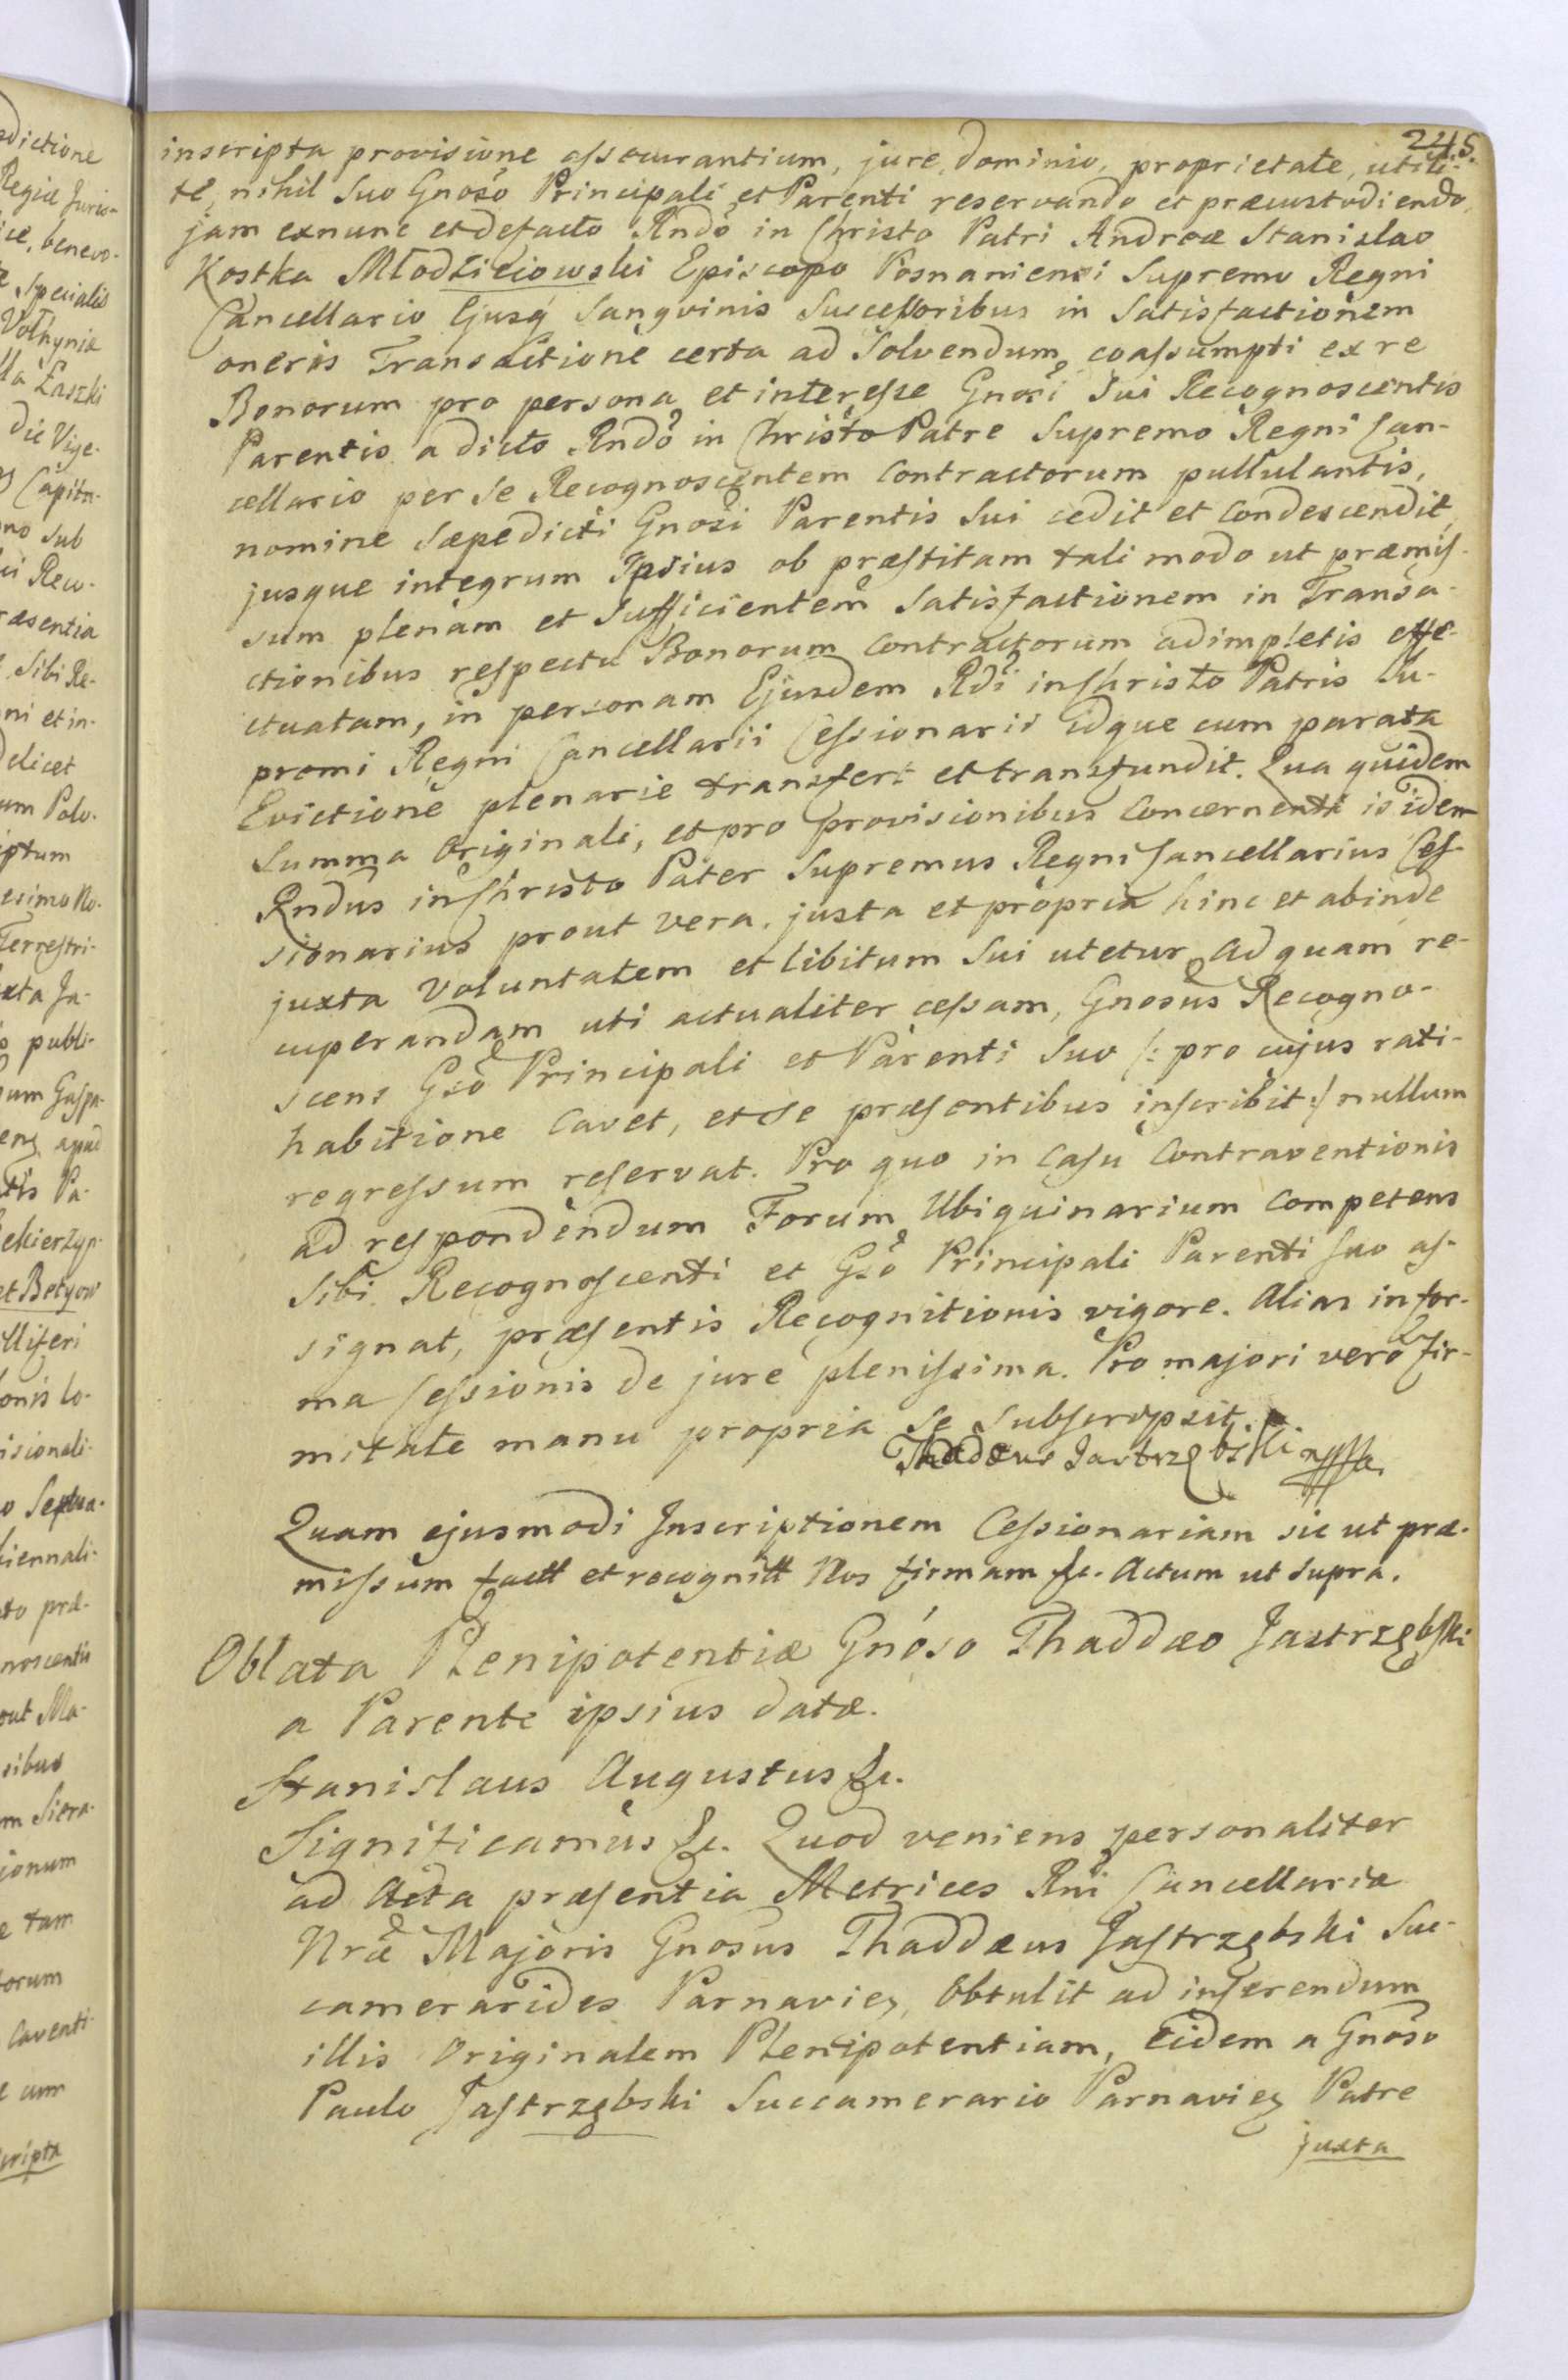 245.
inscripta provisione assecurantium, jure, dominio, proprietate, utili-
te, nihil Suo Gnoso Principali et Parenti reservando et præcustodiendo,
jam exnunc et defacto Rndo in Christo Patri Andreæ Stanislao
Kostka Młodzieiowski Episcopo Posnaniensi Supremo Regni
Cancellario Ejusq Sangvinis Successoribus in Satisfactionem
oneris Transactione certa ad Solvendum coassumpti ex re
Bonorum pro persona et interesse Gnosi Sui Recognoscentis
Parentis a dicto Rndo in Christo Patre Supremo Regni Can-
cellario per Se Recognoscentem Contractorum pullulantis,
nomine Sæpedicti Gnosi Parentis Sui cedit et Condescendit,
jusque integrum Ipsius ob præstitam tali modo ut præmis-
sum plenam et Sufficientem Satisfactionem in Transa-
ctionibus respectu Bonorum Contractorum adimpletis effe-
ctuatam, in personam Ejusdem Rdi in Christo Patris Su-
premi Regni Cancellarii Cessionarii idque cum parata
Evictione plenarie transfert et transfundit. Qua quidem
Summa Originali, et pro provisionibus Concernenti is idem
Rndus in Christo Pater Supremus Regni Cancellarius Ces-
sionarius prout vera, justa et propria hinc et abinde
juxta Voluntatem et libitum Sui utetur, Ad quam re-
cuperandam uti actualiter cessam, Gnosus Recogno-
scens Gso Principali et Parenti Suo /: pro cujus rati-
habitione Cavet, et se præsentibus inscribit :/ nullum
regressum reservat. Pro quo in Casu Contraventionis
ad respondendum Forum Ubiquinarium Competens
Sibi Recognoscenti et Gso Principali Parenti Suo as-
signat, præsentis Recognitionis vigore. Alias in for-
ma Cessionis de jure plenissima. Pro majori vero fir-
mitate manu propria se Subscripsit.
Thadæus Jastrzębski mppa.
Quam ejusmodi Inscriptionem Cessionariam sic ut præ-
missum factt et recognitt Nos firmam &c. Actum ut Supra.
Oblata Plenipotentiæ Gnoso Thaddæo Jastrzębski
a Parente ipsius datæ.
Stanislaus Augustus &c.
Significamus &c. Quod veniens personaliter
ad Acta præsentia Metrices Rni Cancellariæ
Nræ Majoris Gnosus Thaddæus Jastrzębski Suc-
camerarides Parnavien, Obtulit ad inserendum
illis Originalem Plenipotentiam, Eidem a Gnoso
Paulo Jastrzębski Succamerario Parnavien Patre
juxta